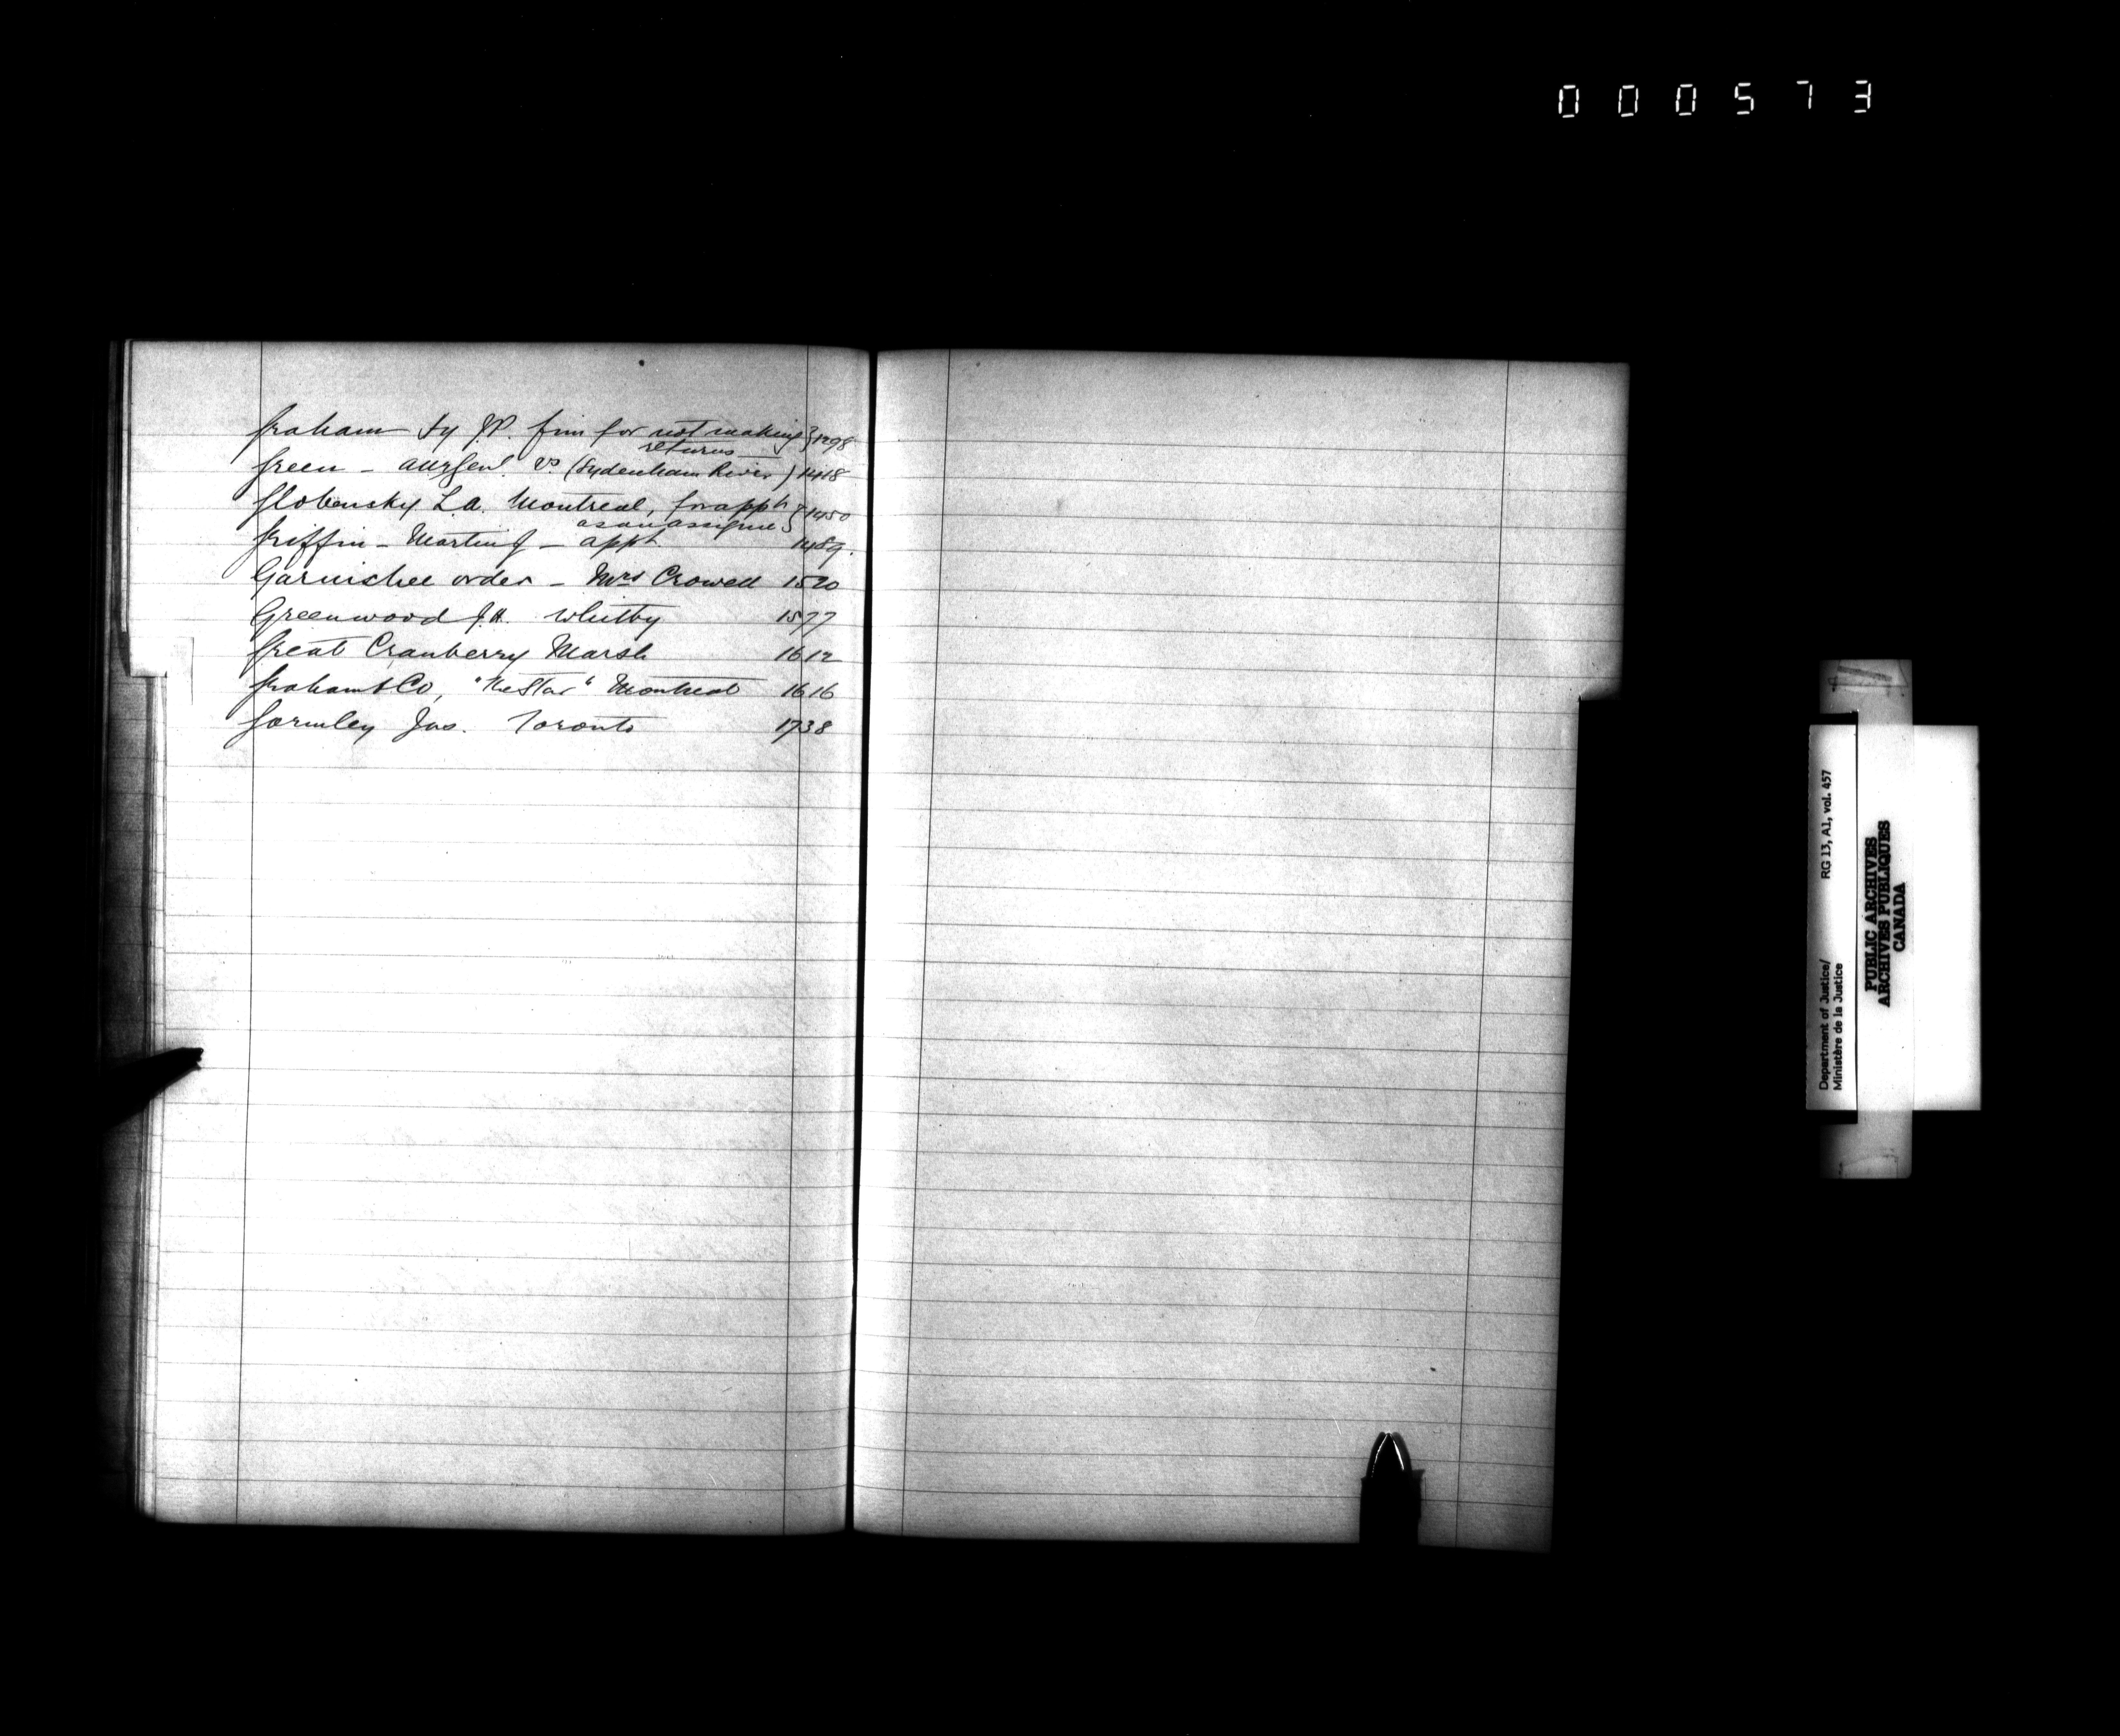 000573
Graham Hy J.P. fine for not making } 1298
returns
Green - Atty Genl. vs (Sydenham River) 1418
Globensky L.A. Montreal, for appt } 1450
as an assignee
Griffin - Martin J - appt 1489.
Garnishee order - Mrs Crowell 1520
Greenwood J.H. Whitby 1577
Great Cranberry Marsh 1612
Graham & Co, "The Star" Montreal 1616
Gormley Jas. Toronto 1738
Department of Justice/ RG 13, A1, vol. 457
Ministère de la Justice
PUBLIC ARCHIVES
ARCHIVES PUBLIQUES
CANADA